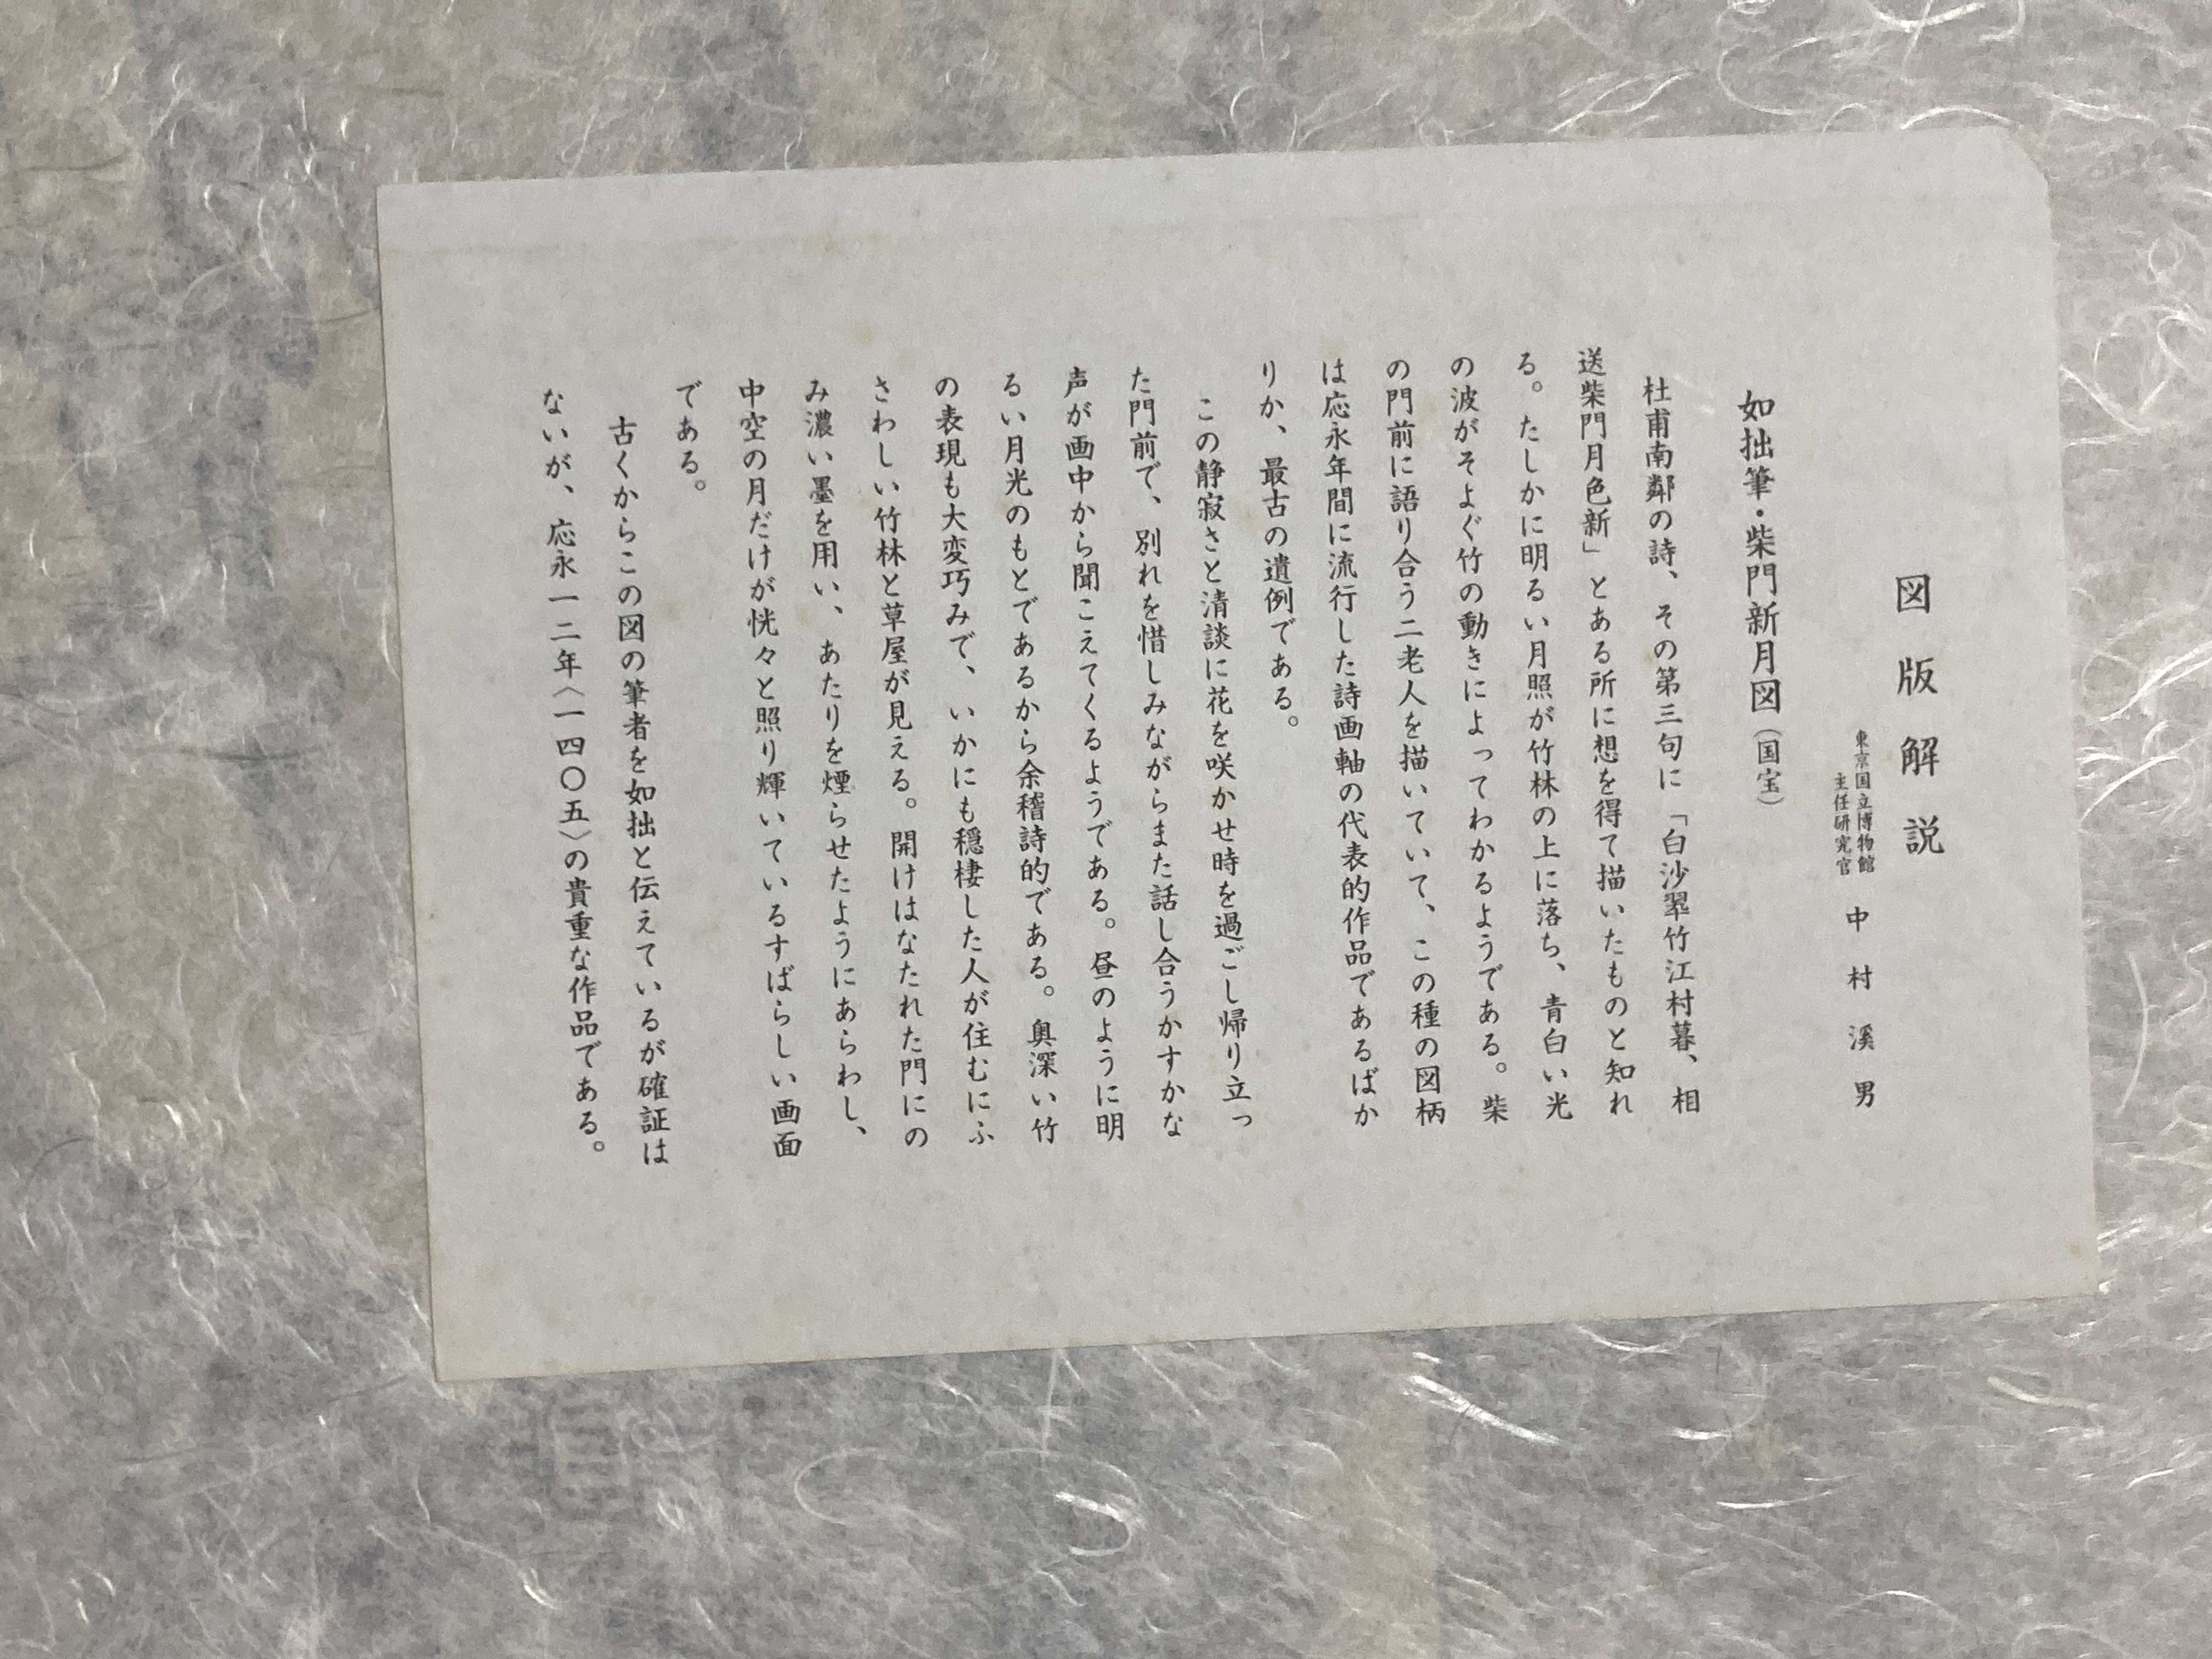 図版解説
東京国立博物館
主任研究官
中村溪男
如拙筆・柴門新月図(国宝)
杜甫南鄰の詩、その第三句に「白沙翠竹江村暮、相
送柴門月色新」とある所に想を得て描いたものと知れ
る。たしかに明るい月照が竹林の上に落ち、青白い光
の波がそよぐ竹の動きによってわかるようである。柴
の門前に語り合う二老人を描いていて、この種の図柄
は応永年間に流行した詩画軸の代表的作品であるばか
りか、最古の遺例である。
この静寂さと清談に花を咲かせ時を過ごし帰り立っ
た門前で、別れを惜しみながらまた話し合うかすかな
声が画中から聞こえてくるようである。昼のように明
るい月光のもとであるから余稽詩的である。奥深い竹
の表現も大変巧みで、いかにも穏棲した人が住むにふ
さわしい竹林と草屋が見える。開けはなたれた門にの
み濃い墨を用い、あたりを煙らせたようにあらわし、
中空の月だけが恍々と照り輝いているすばらしい画面
である。
古くからこの図の筆者を如拙と伝えているが確証は
ないが、応永一二年〈一四〇五〉の貴重な作品である。